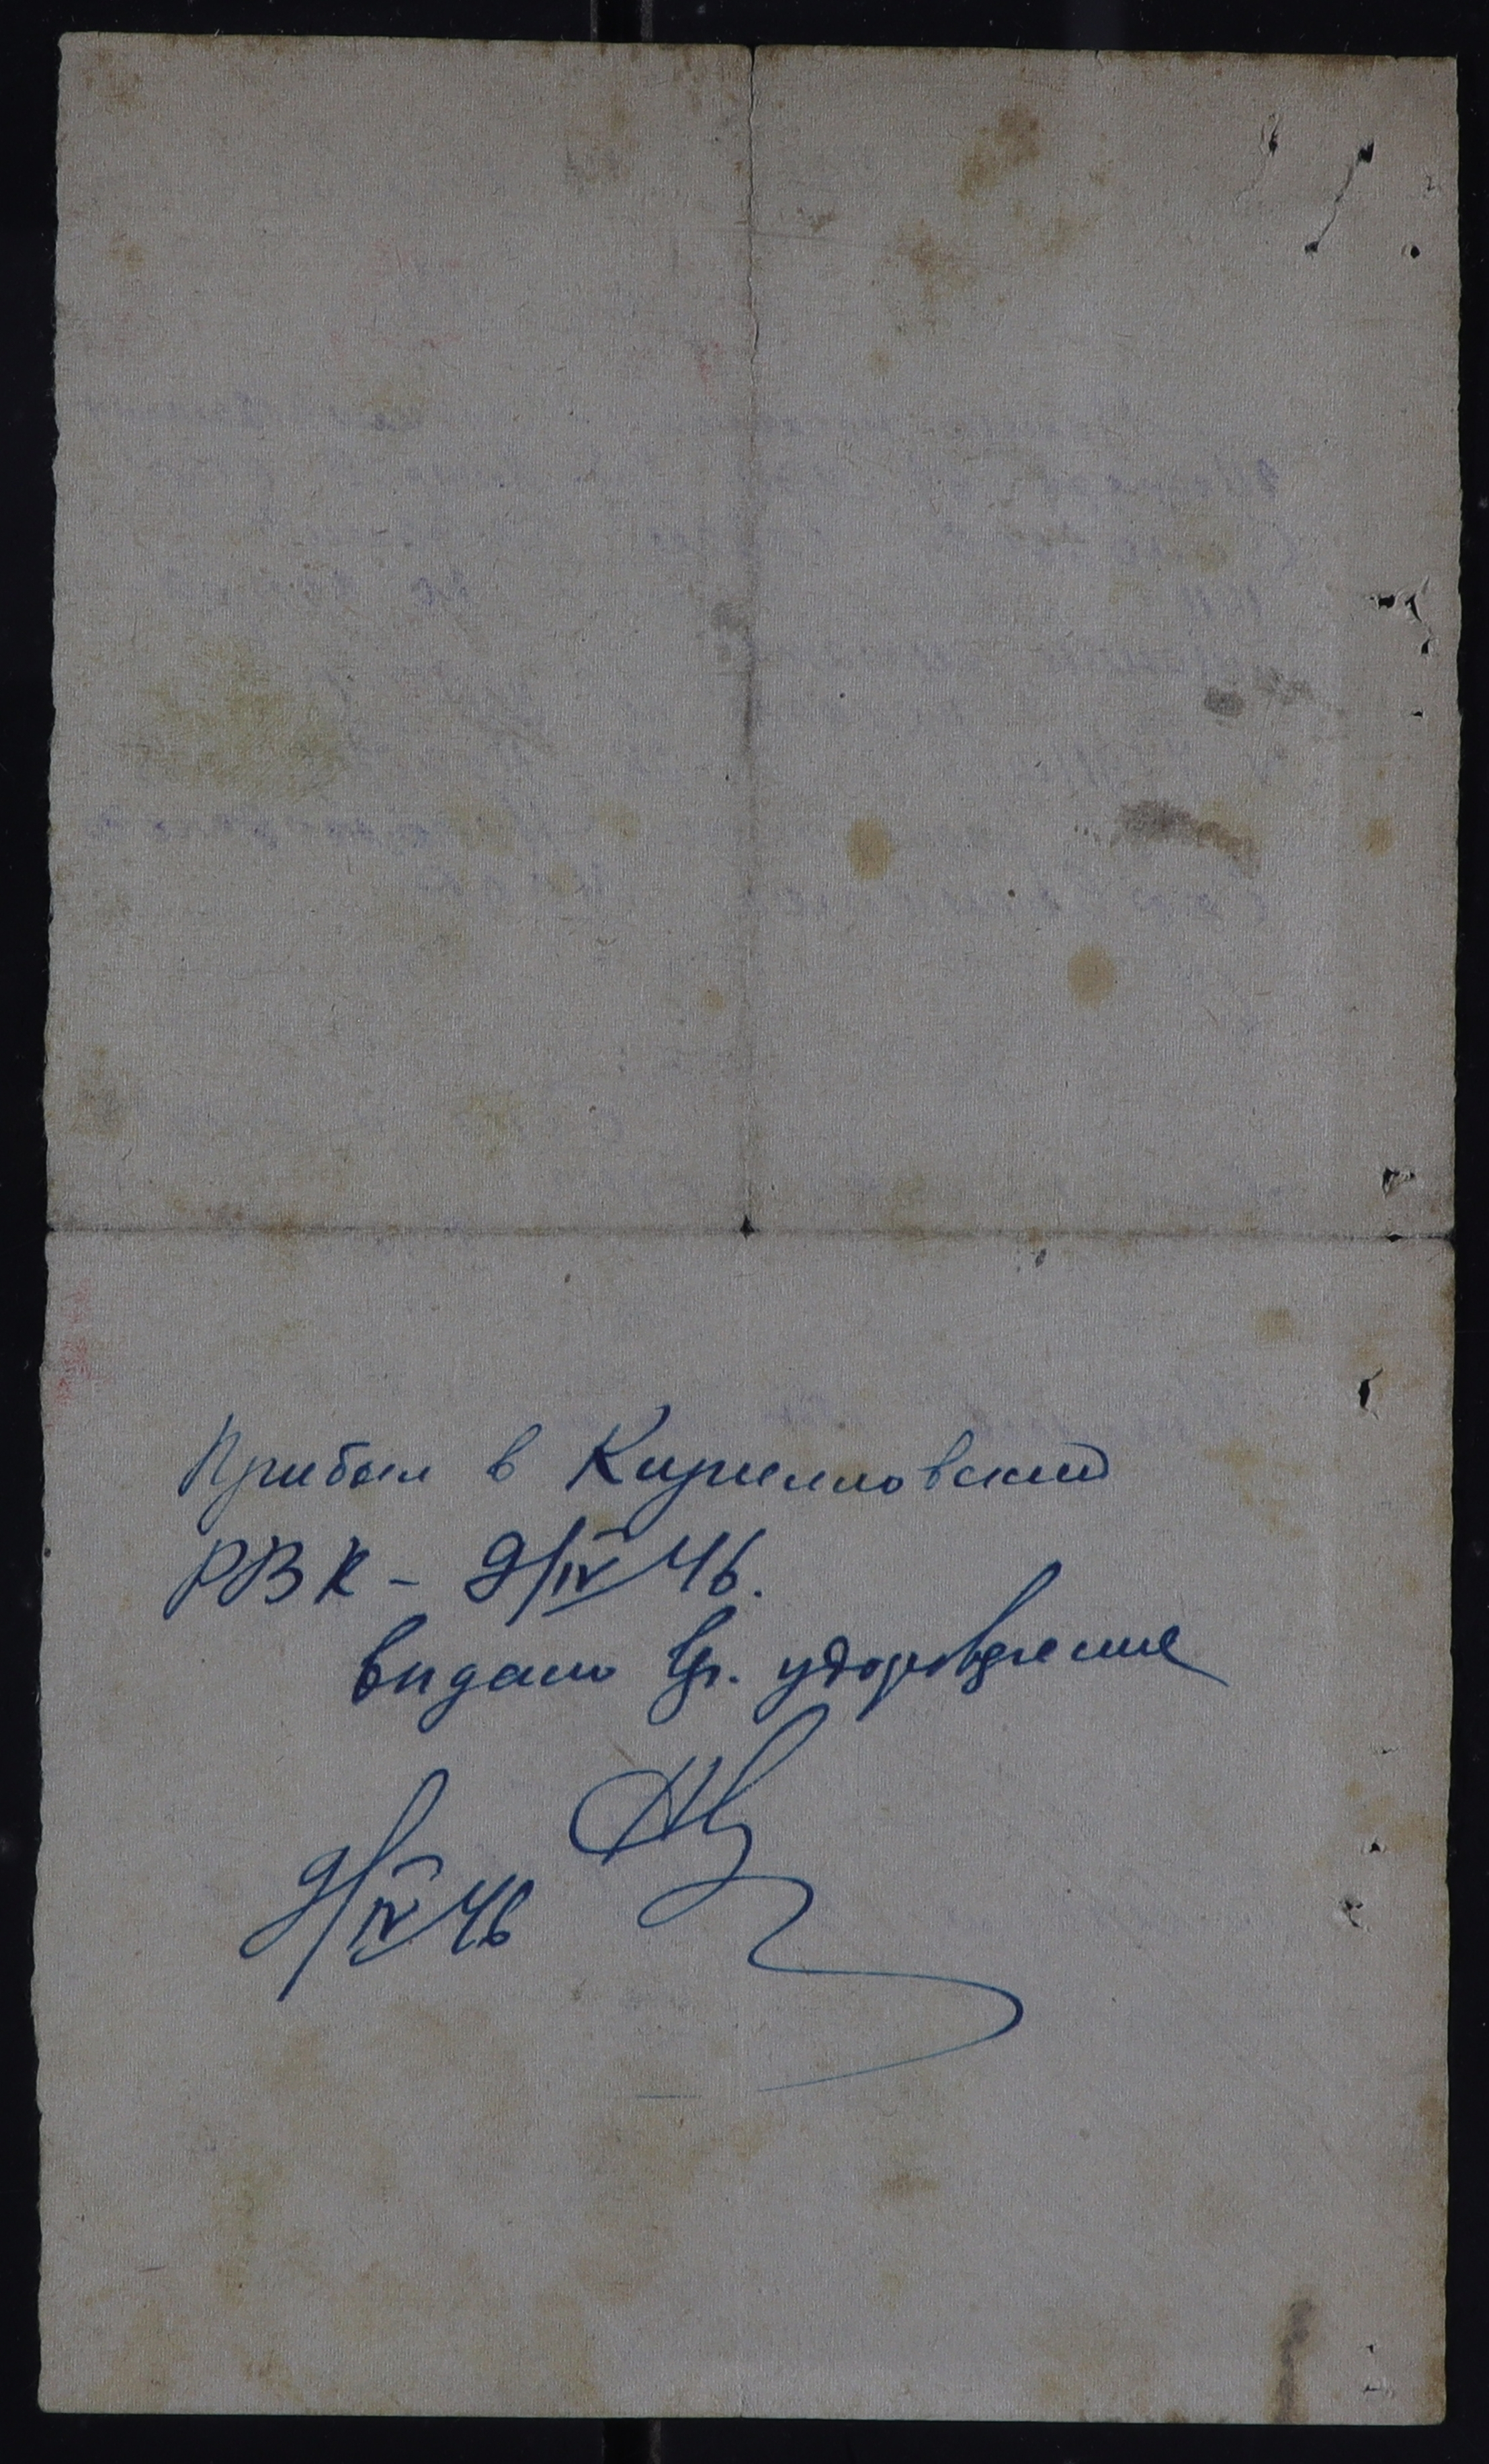 Прибыл в Кирилловский
РВК - 9/IV 46.
выдано вр. удостоверение
9/IV 46